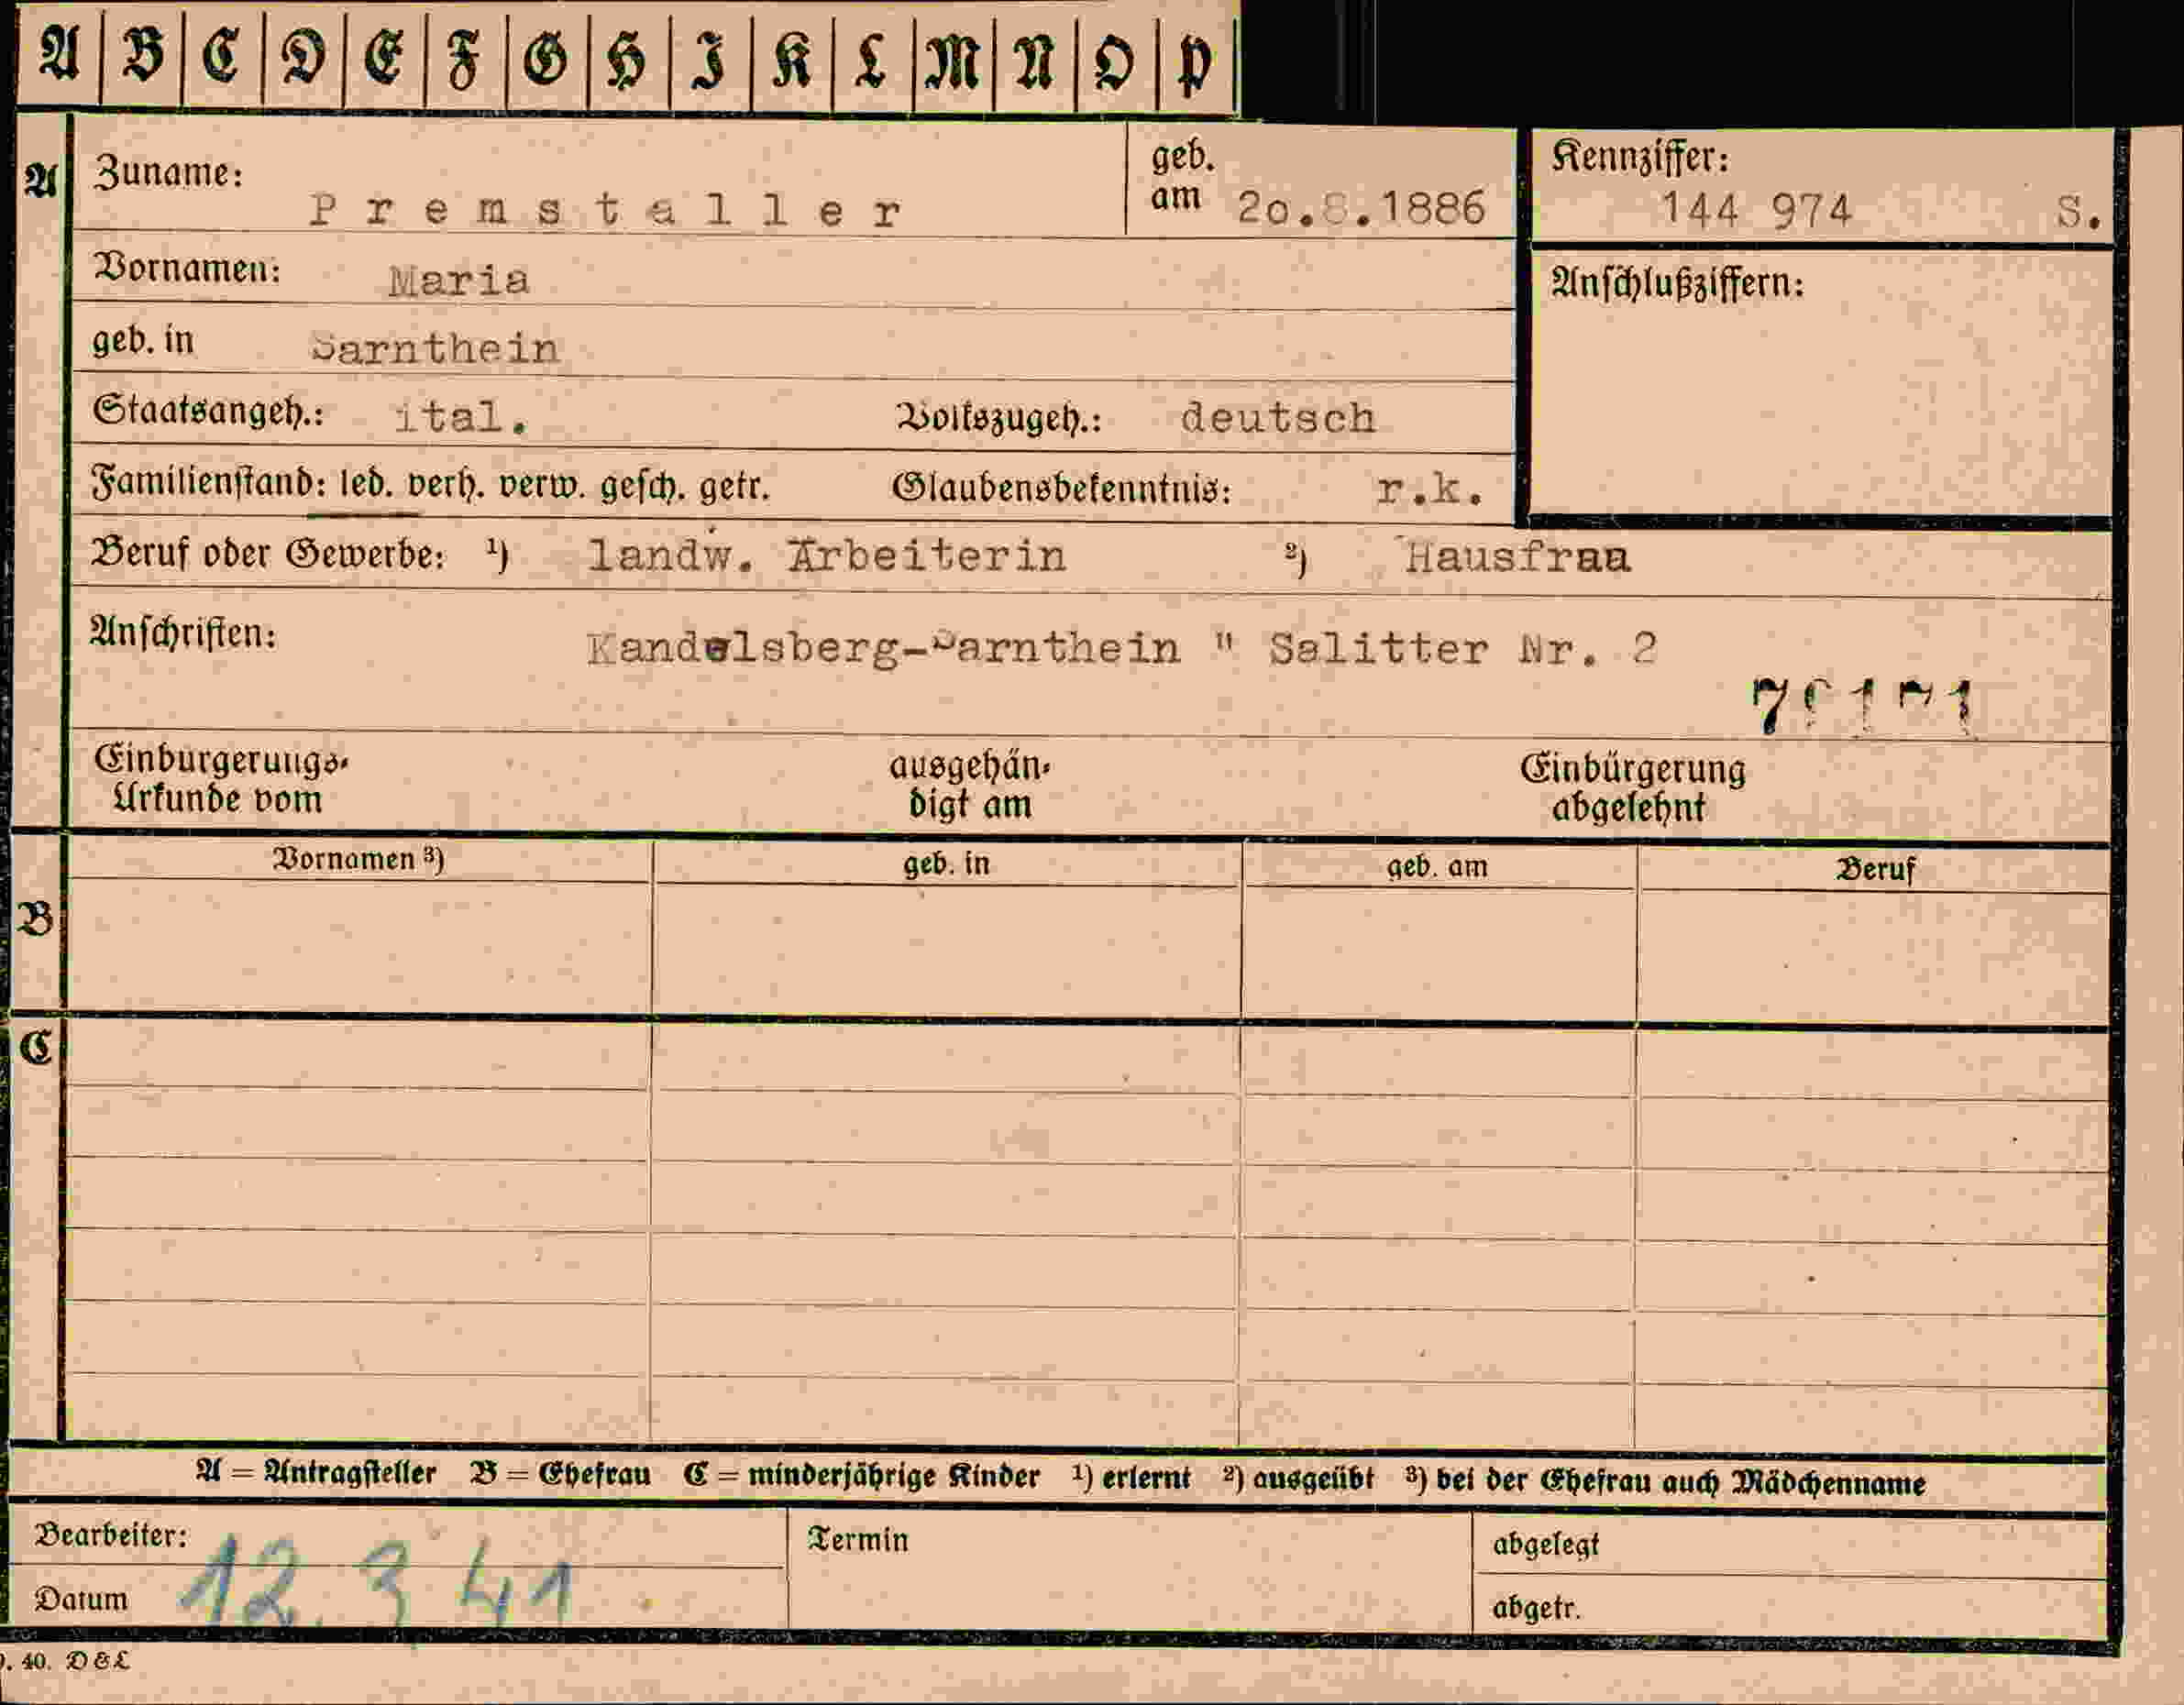 A B C D E F G H I K L M N O P
A
Zuname: Premstaller
geb. am 20.8.1886
Kennziffer: 144 974 S.
Vornamen: Maria
Anschlußziffern:
geb. in Sarnthein
Staatsangeh.: ital. Volkszugeh.: deutsch
Familienstand: led. verh. verw. gesch. getr. Glaubensbekenntnis: r.k.
Beruf oder Gewerbe: ¹) landw. Arbeiterin ²) Hausfraa
Anschriften: Kandelsberg-Sarnthein " Salitter Nr. 2
Einbürgerungs- ausgehän- Einbürgerung
Urkunde vom digt am abgelehnt
Vornamen ³) geb. in geb. am Beruf
B
C
A = Antragsteller B = Ehefrau C = minderjährige Kinder ¹) erlernt ²) ausgeübt ³) bei der Ehefrau auch Mädchenname
Bearbeiter: Termin abgelegt
Datum 12. 3 41 abgetr.
40. D&L